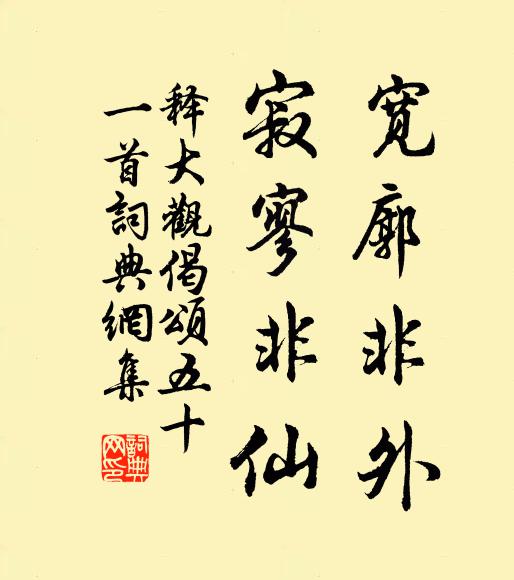 寬廓非外
寂寥非仙
释大觀偈頌五十
一首詞典網集
詞典
网印